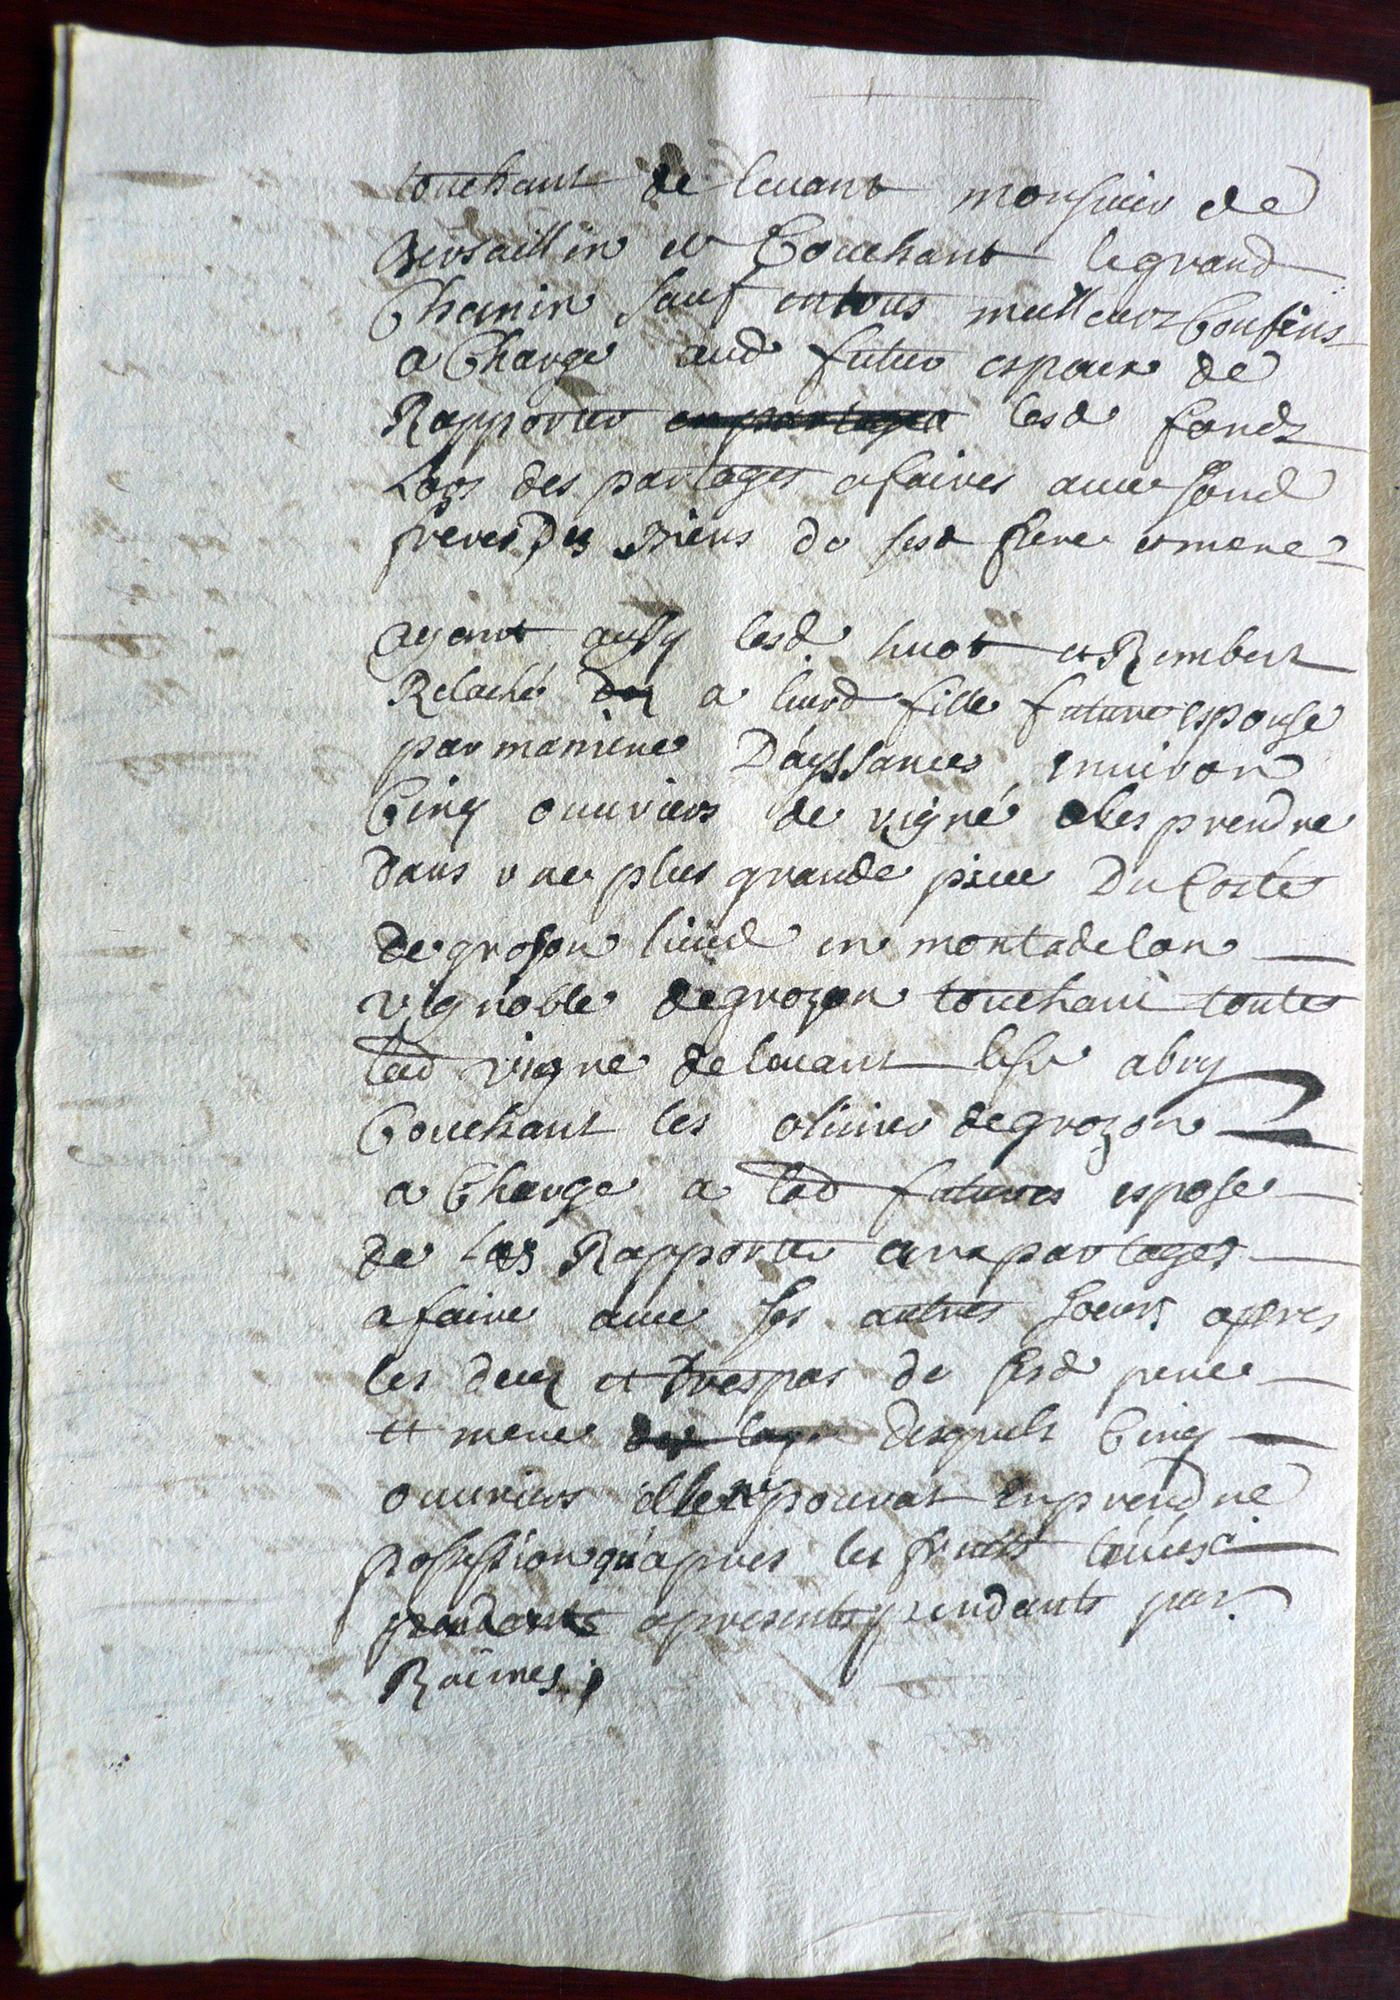 touchant de levant monsieur de
Versaillin et Couchant le grand
Chemin sauf en tous meilleurs Confins
a Charge aud futur espoux de
Rapporter en partage lesd fondz
Lors des partages a faires avec sesd
freres des Biens de sesd pere et mere
Ayant aussy lesd. huot et Rembert
Relaché des a leurd fille future espouse
par maniere D'ayssances environ
Cinq ouvriers de vigne a les prendre
dans une plus grande piece Du Costé
de groson lieud en montadelon
vignoble de grozon touchant toutes
lad vigne de levant le sr abry
Couchant les olivier de grozon
a Charge a lad futures espose
de Les Rapporter aux partages
a faire avec ses autres soeurs apres
les decez et trespas de sesd pere
et mere desquels Cinq
ouvriers elle ne pourat en prendre
possession qu'apres les fruits levées
pendants apresents pendants par
Racines;